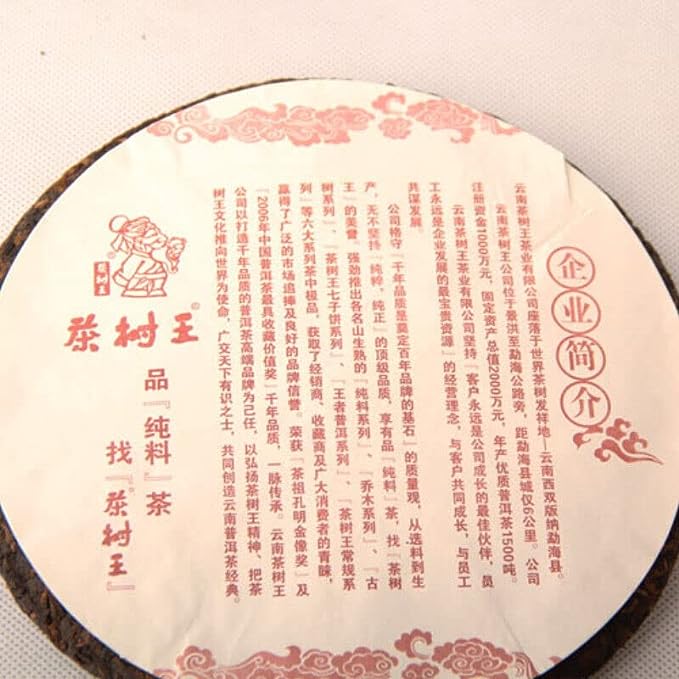 企业简介
云南茶树王茶业有限公司座落于世界茶树发祥地—云南西双版纳勐海县。
云南茶树王公司位于景洪至勐海公路旁，距勐海县城仅6公里。公司
注册资金1000万元，固定资产总值2000万元，年产优质普洱茶1500吨。
云南茶树王茶业有限公司坚持『客户永远是公司成长的最佳伙伴，员
工永远是企业发展的最宝贵资源』的经营理念，与客户共同成长，与员工
共谋发展。
公司恪守『千年品质是奠定百年品牌的基石』的质量观，从选料到生
产，无不坚持『纯粹，纯正』的顶级品质，享有品『纯料』茶，找『茶树
王』的美誉。强劲推出各名山生熟的『纯料系列』、『乔木系列』、『古
树系列』、『茶树王七子饼系列』、『王者普洱系列』、『茶树王常规系
列』等六大系列茶中极品，获取了经销商、收藏商及广大消费者的青睐，
赢得了广泛的市场追捧及良好的品牌信誉。荣获『茶祖孔明金像奖』及
『2006年中国普洱茶最具收藏价值奖』千年品质，一脉传承。云南茶树王
公司以打造千年品质的普洱茶高端品牌为己任，以弘扬茶树王精神、把茶
树王文化推向世界为使命，广交天下有识之士，共同创造云南普洱茶经典。
茶树王
茶树王®
品『纯料』茶
找『茶树王』